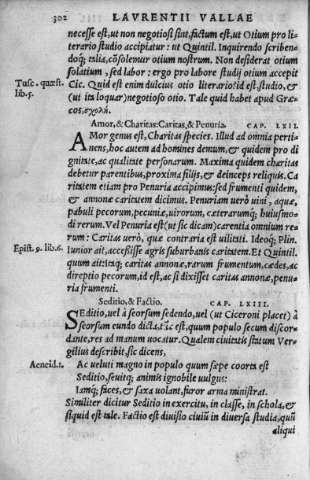 302 LAVRENTII VALLAE
necesse est, ut non negotiosi sint, factum est, ut Otium pro li-
terario studio accipiatur: ut Quintil. Inquirendo scribendo
q; talia, cõsolemur otium nostrum. Non desiderat otium
solatium, sed labor: ergo pro labore studij otium accepit
Tusc. quæst. lib. 5.
Cic. Quid est enim dulcius otio literario? id est, studio, &
(ut ita loquar) negotioso otio. Tale quid habet apud Græ-
cos, σχολή.
Amor, & Charitas: Caritas, & Penuria. CAP. LXII.
AMor genus est, Charitas species. Illud ad omnia perti-
nens, hoc autem ad homines demum, & quidem pro di
gnitate, ac qualitate personarum. Maxima quidem charitas
debetur parentibus, proxima filijs, & deinceps reliquis. Ca
ritatem etiam pro Penuria accipimus: sed frumenti quidem,
& annonæ caritatem dicimus. Penuriam uerò uini, aquæ,
pabuli pecorum, pecuniæ, uirorum, cæterarumq; huiusmo-
di rerum. Vel Penuria est (ut sic dicam) carentia omnium re
rum: Caritas uerò, quæ contraria est uilitati. Ideoq; Plin.
Epist. 9. lib. 6.
Iunior ait, accessisse agris suburbanis caritatem. Et Quintil.
quum ait: atq; caritas annonæ, rarum frumentum, cædes, ac
direptio pecorum, id est, ac si dixisset caritas annonæ, penu-
ria frumenti.
Seditio, & Factio. CAP. LXIII.
SEditio, uel à seorsum sedendo, uel (ut Ciceroni placet) à
seorsum eundo dicta: sic est, quum populo secum discor-
dante, res ad manum uocatur. Qualem ciuitatis statum Ver-
gilius describit, sic dicens,
Aeneid. 1.
Ac ueluti magno in populo quum sæpe coorta est
Seditio, seuitq; animis ignobile uulgus:
Iamq; faces, & saxa uolant, furor arma ministrat.
Similiter dicitur Seditio in exercitu, in classe, in schola, &
siquid est tale. Factio est diuisio ciuiũ in diuersa studia, quũ
aliqui